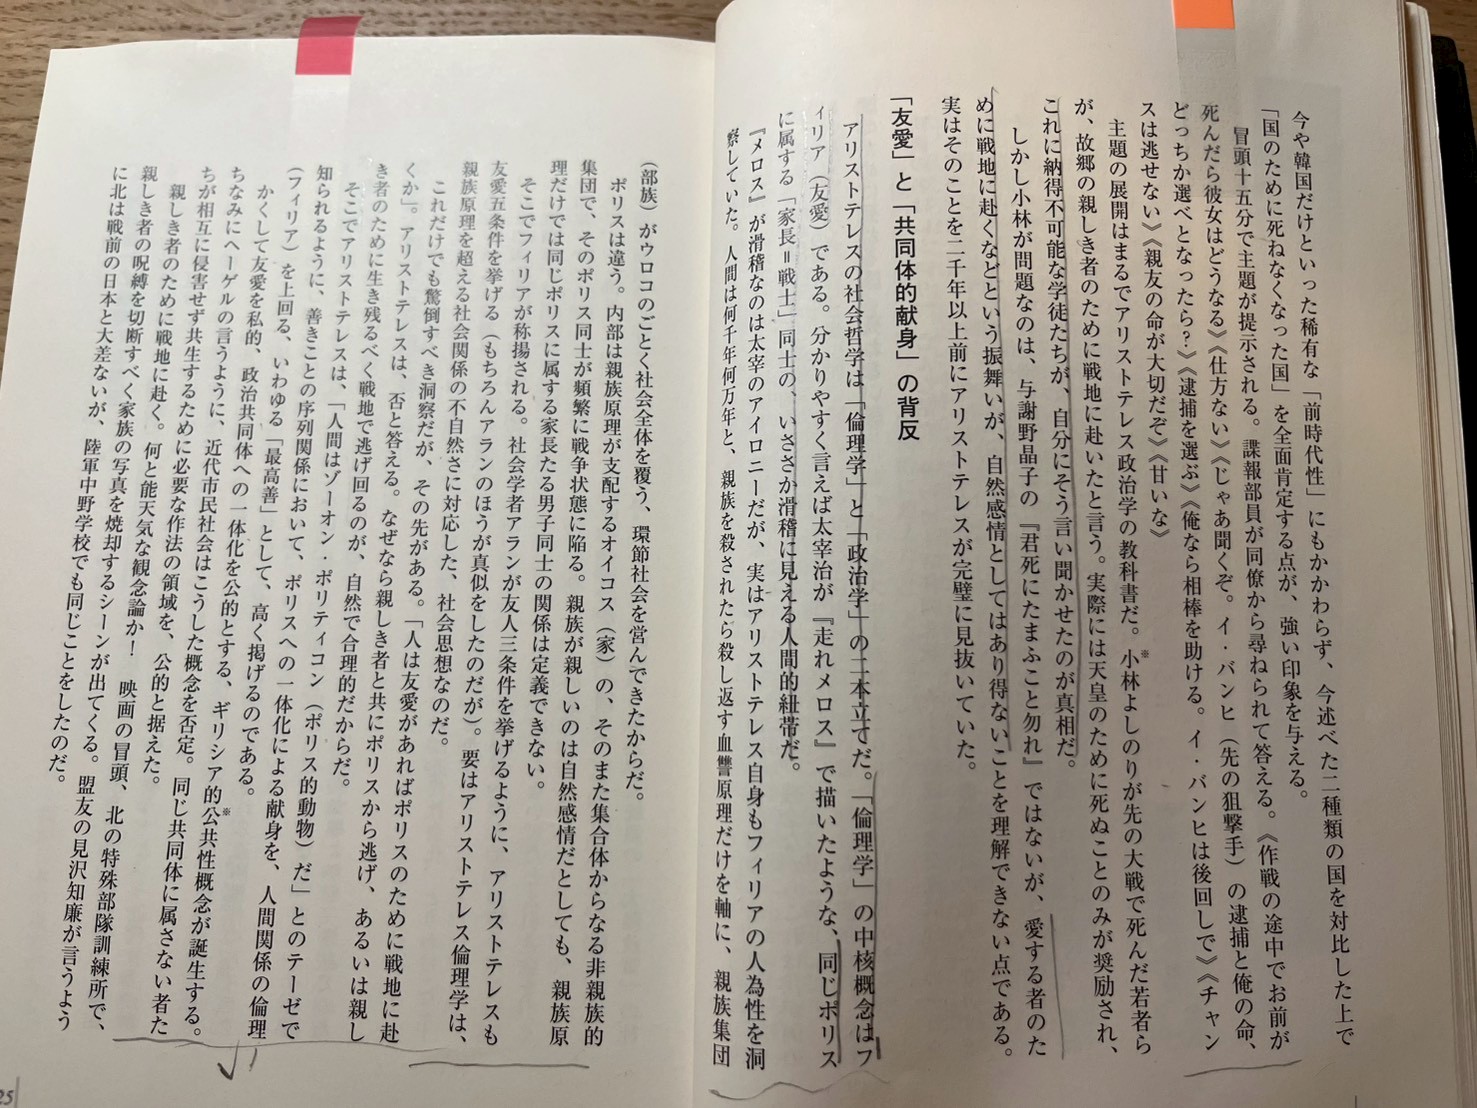 今や韓国だけといった稀有な「前時代性」にもかかわらず、今述べた二種類の国を対比した上で
「国のために死ねなくなった国」を全面肯定する点が、強い印象を与える。
冒頭十五分で主題が提示される。諜報部員が同僚から尋ねられて答える。《作戦の途中でお前が
死んだら彼女はどうなる》《仕方ない》《じゃあ聞くぞ。イ・バンヒ（先の狙撃手）の逮捕と俺の命、
どっちか選べとなったら？》《逮捕を選ぶ》《俺なら相棒を助ける。イ・バンヒは後回しで》《チャン
スは逃せない》《親友の命が大切だぞ》《甘いな》
主題の展開はまるでアリストテレス政治学の教科書だ。小林よしのりが先の大戦で死んだ若者ら
※
が、故郷の親しき者のために戦地に赴いたと言う。実際には天皇のために死ぬことのみが奨励され、
これに納得不可能な学徒たちが、自分にそう言い聞かせたのが真相だ。
しかし小林が問題なのは、与謝野晶子の『君死にたまふこと勿れ』ではないが、愛する者のた
めに戦地に赴くなどという振舞いが、自然感情としてはあり得ないことを理解できない点である。
実はそのことを二千年以上前にアリストテレスが完璧に見抜いていた。
「友愛」と「共同体的献身」の背反
アリストテレスの社会哲学は「倫理学」と「政治学」の二本立てだ。「倫理学」の中核概念はフ
ィリア（友愛）である。分かりやすく言えば太宰治が『走れメロス』で描いたような、同じポリス
に属する「家長＝戦士」同士の、いささか滑稽に見える人間的紐帯だ。
『メロス』が滑稽なのは太宰のアイロニーだが、実はアリストテレス自身もフィリアの人為性を洞
察していた。人間は何千年何万年と、親族を殺されたら殺し返す血讐原理だけを軸に、親族集団
（部族）がウロコのごとく社会全体を覆う、環節社会を営んできたからだ。
ポリスは違う。内部は親族原理が支配するオイコス（家）の、そのまた集合体からなる非親族的
集団で、そのポリス同士が頻繁に戦争状態に陥る。親族が親しいのは自然感情だとしても、親族原
理だけでは同じポリスに属する家長たる男子同士の関係は定義できない。
そこでフィリアが称揚される。社会学者アランが友人三条件を挙げるように、アリストテレスも
友愛五条件を挙げる（もちろんアランのほうが真似をしたのだが）。要はアリストテレス倫理学は、
親族原理を超える社会関係の不自然さに対応した、社会思想なのだ。
これだけでも驚倒すべき洞察だが、その先がある。「人は友愛があればポリスのために戦地に赴
くか」。アリストテレスは、否と答える。なぜなら親しき者と共にポリスから逃げ、あるいは親し
き者のために生き残るべく戦地で逃げ回るのが、自然で合理的だからだ。
そこでアリストテレスは、「人間はゾーオン・ポリティコン（ポリス的動物）だ」とのテーゼで
知られるように、善きことの序列関係において、ポリスへの一体化による献身を、人間関係の倫理
（フィリア）を上回る、いわゆる「最高善」として、高く掲げるのである。
かくして友愛を私的、政治共同体への一体化を公的とする、ギリシア的公共性概念が誕生する。
※
ちなみにヘーゲルの言うように、近代市民社会はこうした概念を否定。同じ共同体に属さない者た
ちが相互に侵害せず共生するために必要な作法の領域を、公的と据えた。
親しき者のために戦地に赴く。何と能天気な観念論か！　映画の冒頭、北の特殊部隊訓練所で、
親しき者の呪縛を切断すべく家族の写真を焼却するシーンが出てくる。盟友の見沢知廉が言うよう
に北は戦前の日本と大差ないが、陸軍中野学校でも同じことをしたのだ。
25